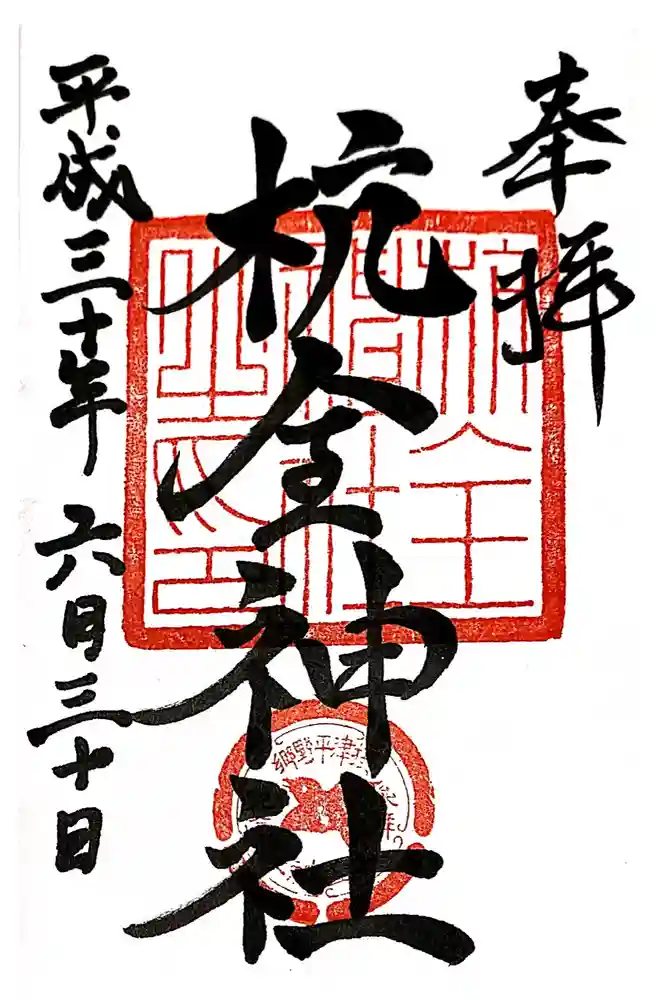 奉拝
杭全神社
平成三十年 六月三十日
杭全
神社
之印